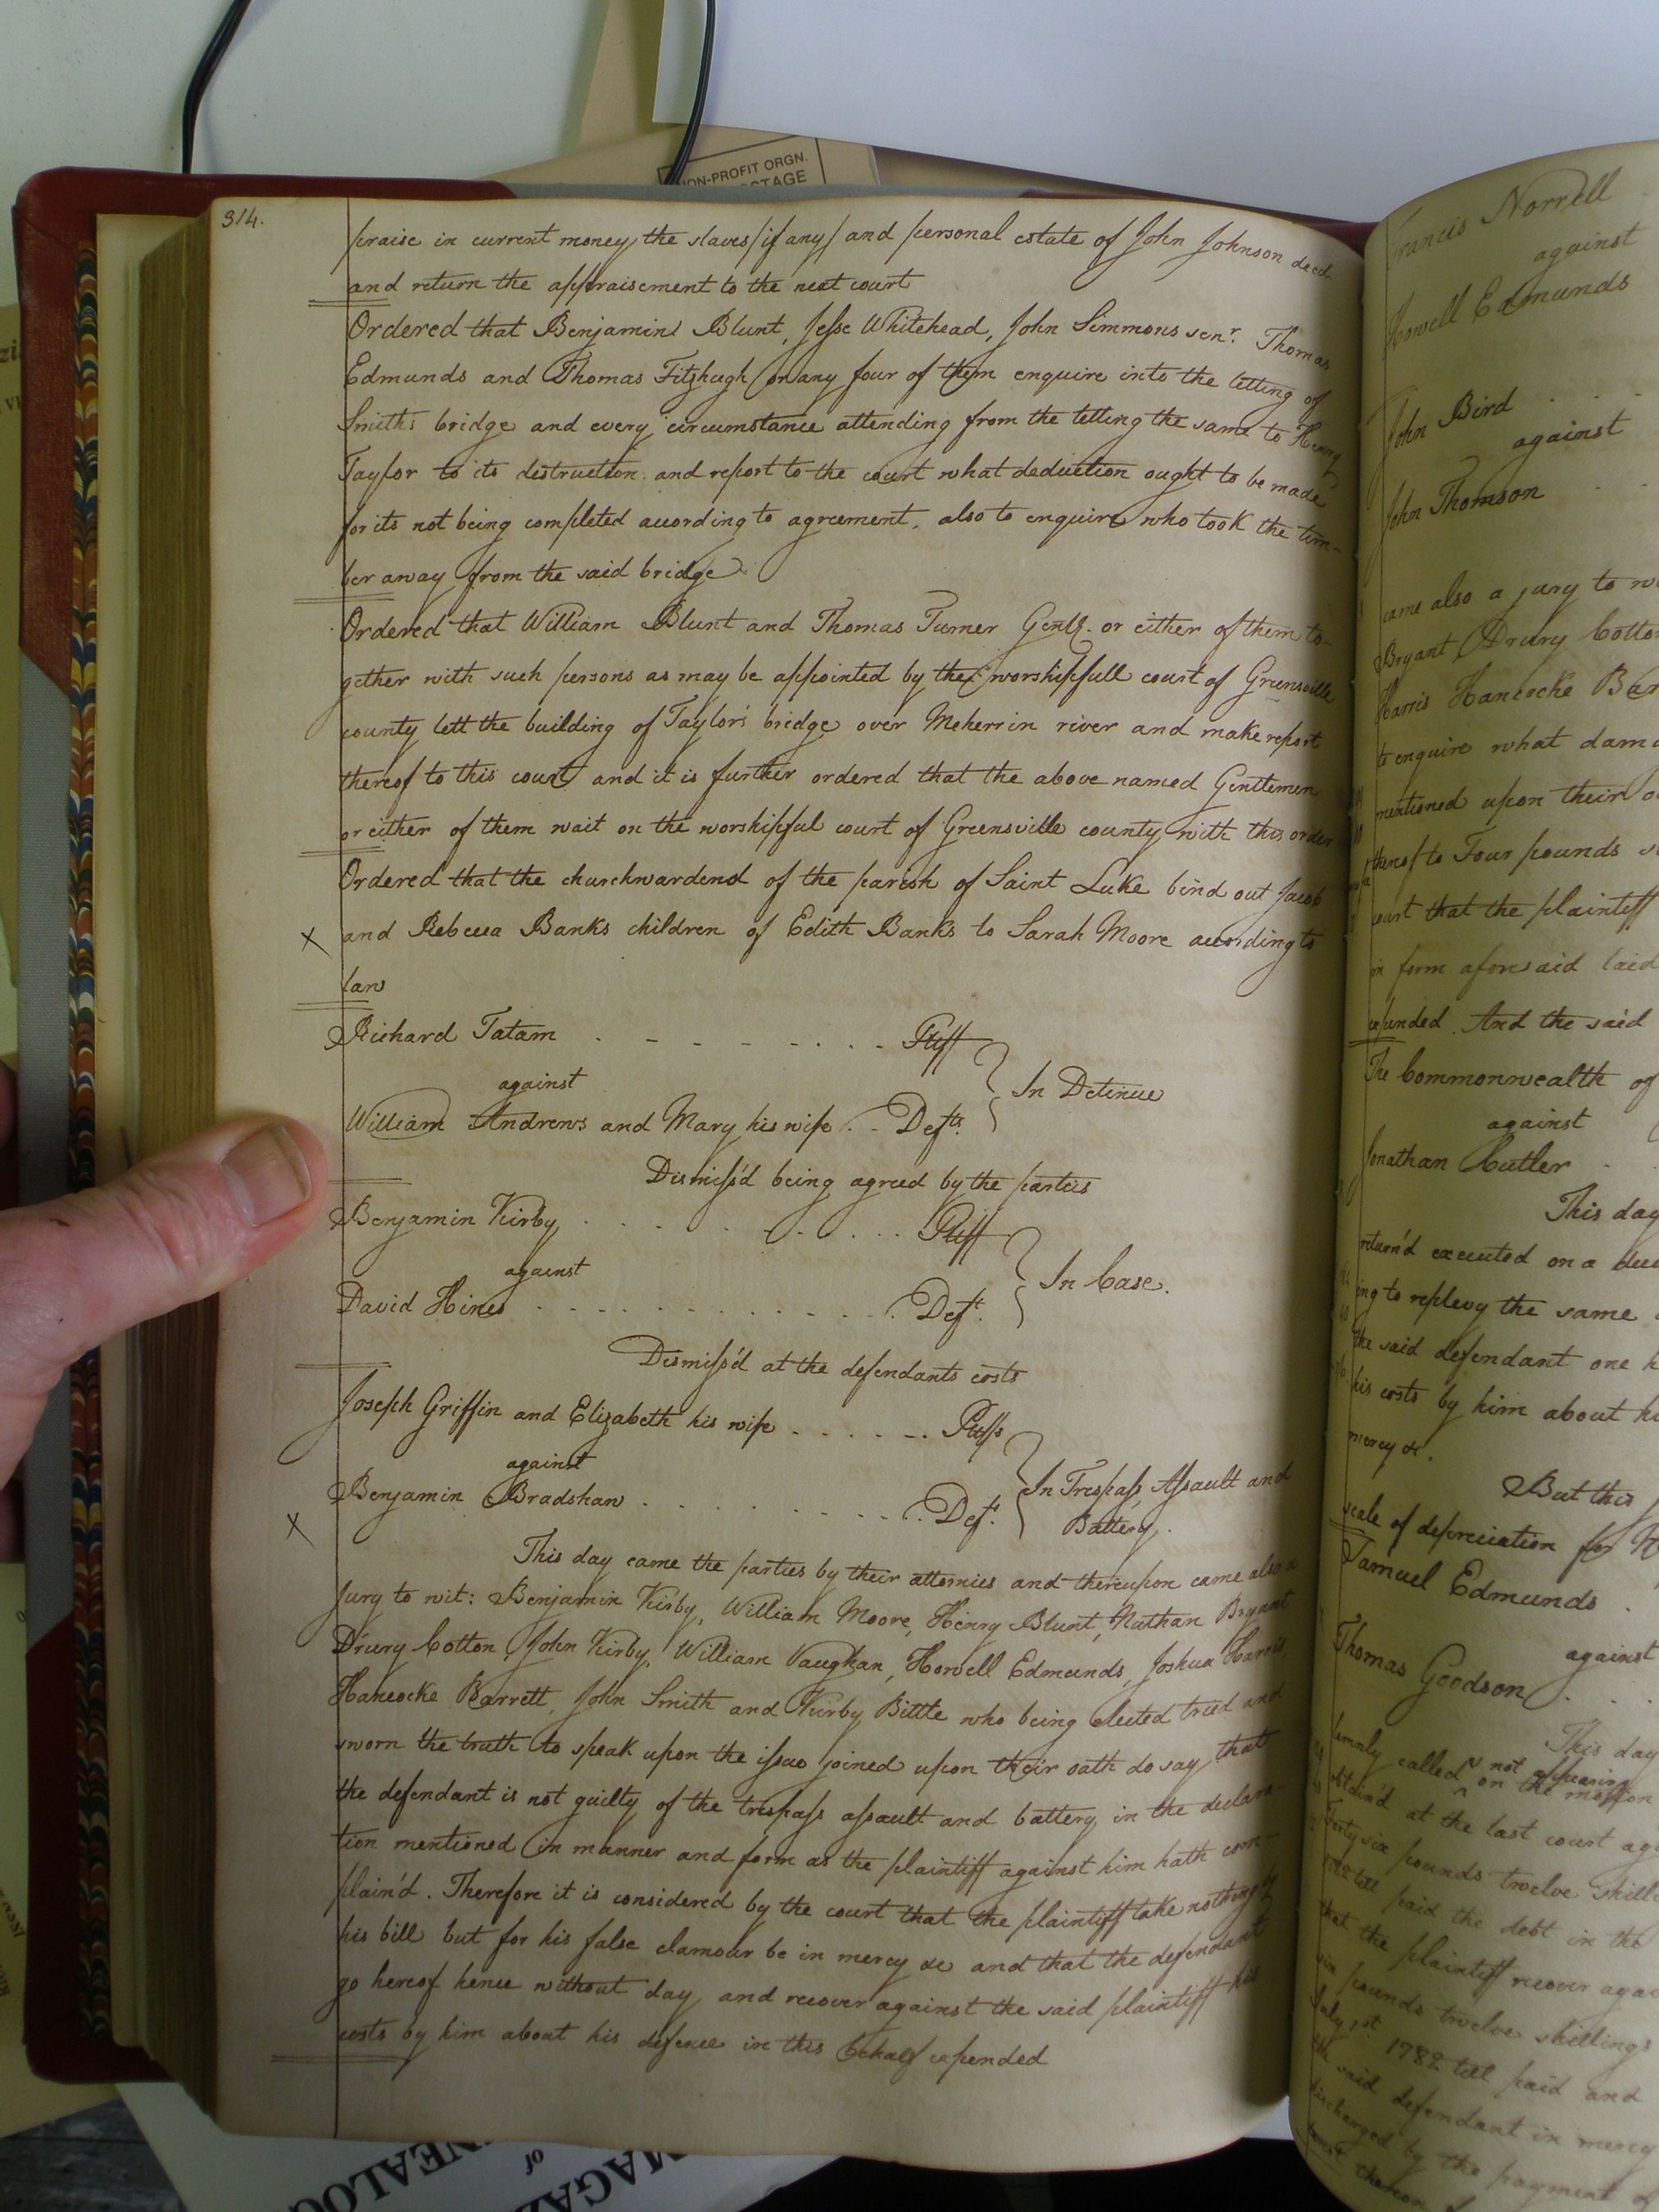 NON-PROFIT ORGN.
314.
praise in current money the slaves (if any) and personal estate of John Johnson decd.
and return the appraisement to the next court
Ordered that Benjamin Blunt, Jesse Whitehead, John Simmons senr. Thomas
Edmunds and Thomas Fitzhugh or any four of them enquire into the letting of
Smith's bridge and every circumstance attending from the letting the same to Henry
Taylor to its destruction and report to the court what deduction ought to be made
for its not being completed according to agreement, also to enquire who took the tim-
ber away from the said bridge
Ordered that William Blunt and Thomas Turner Gentl. or either of them to-
gether with such persons as may be appointed by the worshipfull court of Greensville
county lett the building of Taylor's bridge over Meherrin river and make report
thereof to this court and it is further ordered that the above named Gentlemen
or either of them wait on the worshipful court of Greensville county with this order
Ordered that the churchwardens of the parish of Saint Luke bind out Jacob
x and Rebecca Banks children of Edith Banks to Sarah Moore according to
law
Richard Tatam . - - - - . . . - Pltff
against } In Detinue
William Andrews and Mary his wife . . - Defts.
Dismiss'd being agreed by the parties
Benjamin Kirby . . . . . . . . . Pltff
against } In Case.
David Hines . . . . . . . . . . . . Deft.
Dismiss'd at the defendants costs
Joseph Griffin and Elizabeth his wife . . . . . . . Pltffs
against } In Trespass, Assault and
x Benjamin Bradshaw . . . . . . . . . . Deft. Battery.
This day came the parties by their attornies and thereupon came also a
Jury to wit: Benjamin Kirby, William Moore, Henry Blunt, Nathan Bryant
Drury Cotton, John Kirby, William Vaughan, Howell Edmunds, Joshua Harris,
Hancocke Barrett, John Smith and Kirby Bittle who being elected tried and
sworn the truth to speak upon the issue joined upon their oath do say that
the defendant is not guilty of the trespass assault and battery in the declara-
tion mentioned in manner and form as the plaintiff against him hath com-
plain'd. Therefore it is considered by the court that the plaintiff take nothing by
his bill but for his false clamour be in mercy &c and that the defendant
go hereof hence without day and recover against the said plaintiff his
costs by him about his defence in this behalf expended
Francis Norrell
against
Howell Edmunds
John Bird . . .
against
John Thomson . .
came also a jury to
Bryant, Drury Cotton
Harris Hancocke Bar
to enquire what dama
mentioned upon their
thereof to Four pounds
court that the plaintiff
in form aforesaid laid
expended. And the said
The Commonwealth of
against
Jonathan Cutler .
This day
return'd executed on a
ing to replevy the same
the said defendant one
his costs by him about
mercy &c.
But this
scale of depreciation for
Samuel Edmunds .
against
Thomas Goodson . . .
This day
lemnly called & not appearing
on the motion
obtain'd at the last court
Forty six pounds twelve
till paid the debt in the
that the plaintiff recover
six pounds twelve shillings
July 1st 1782 till paid and
the said defendant in mercy
discharged by the payment of
MAGAZ
of
GENEALOG